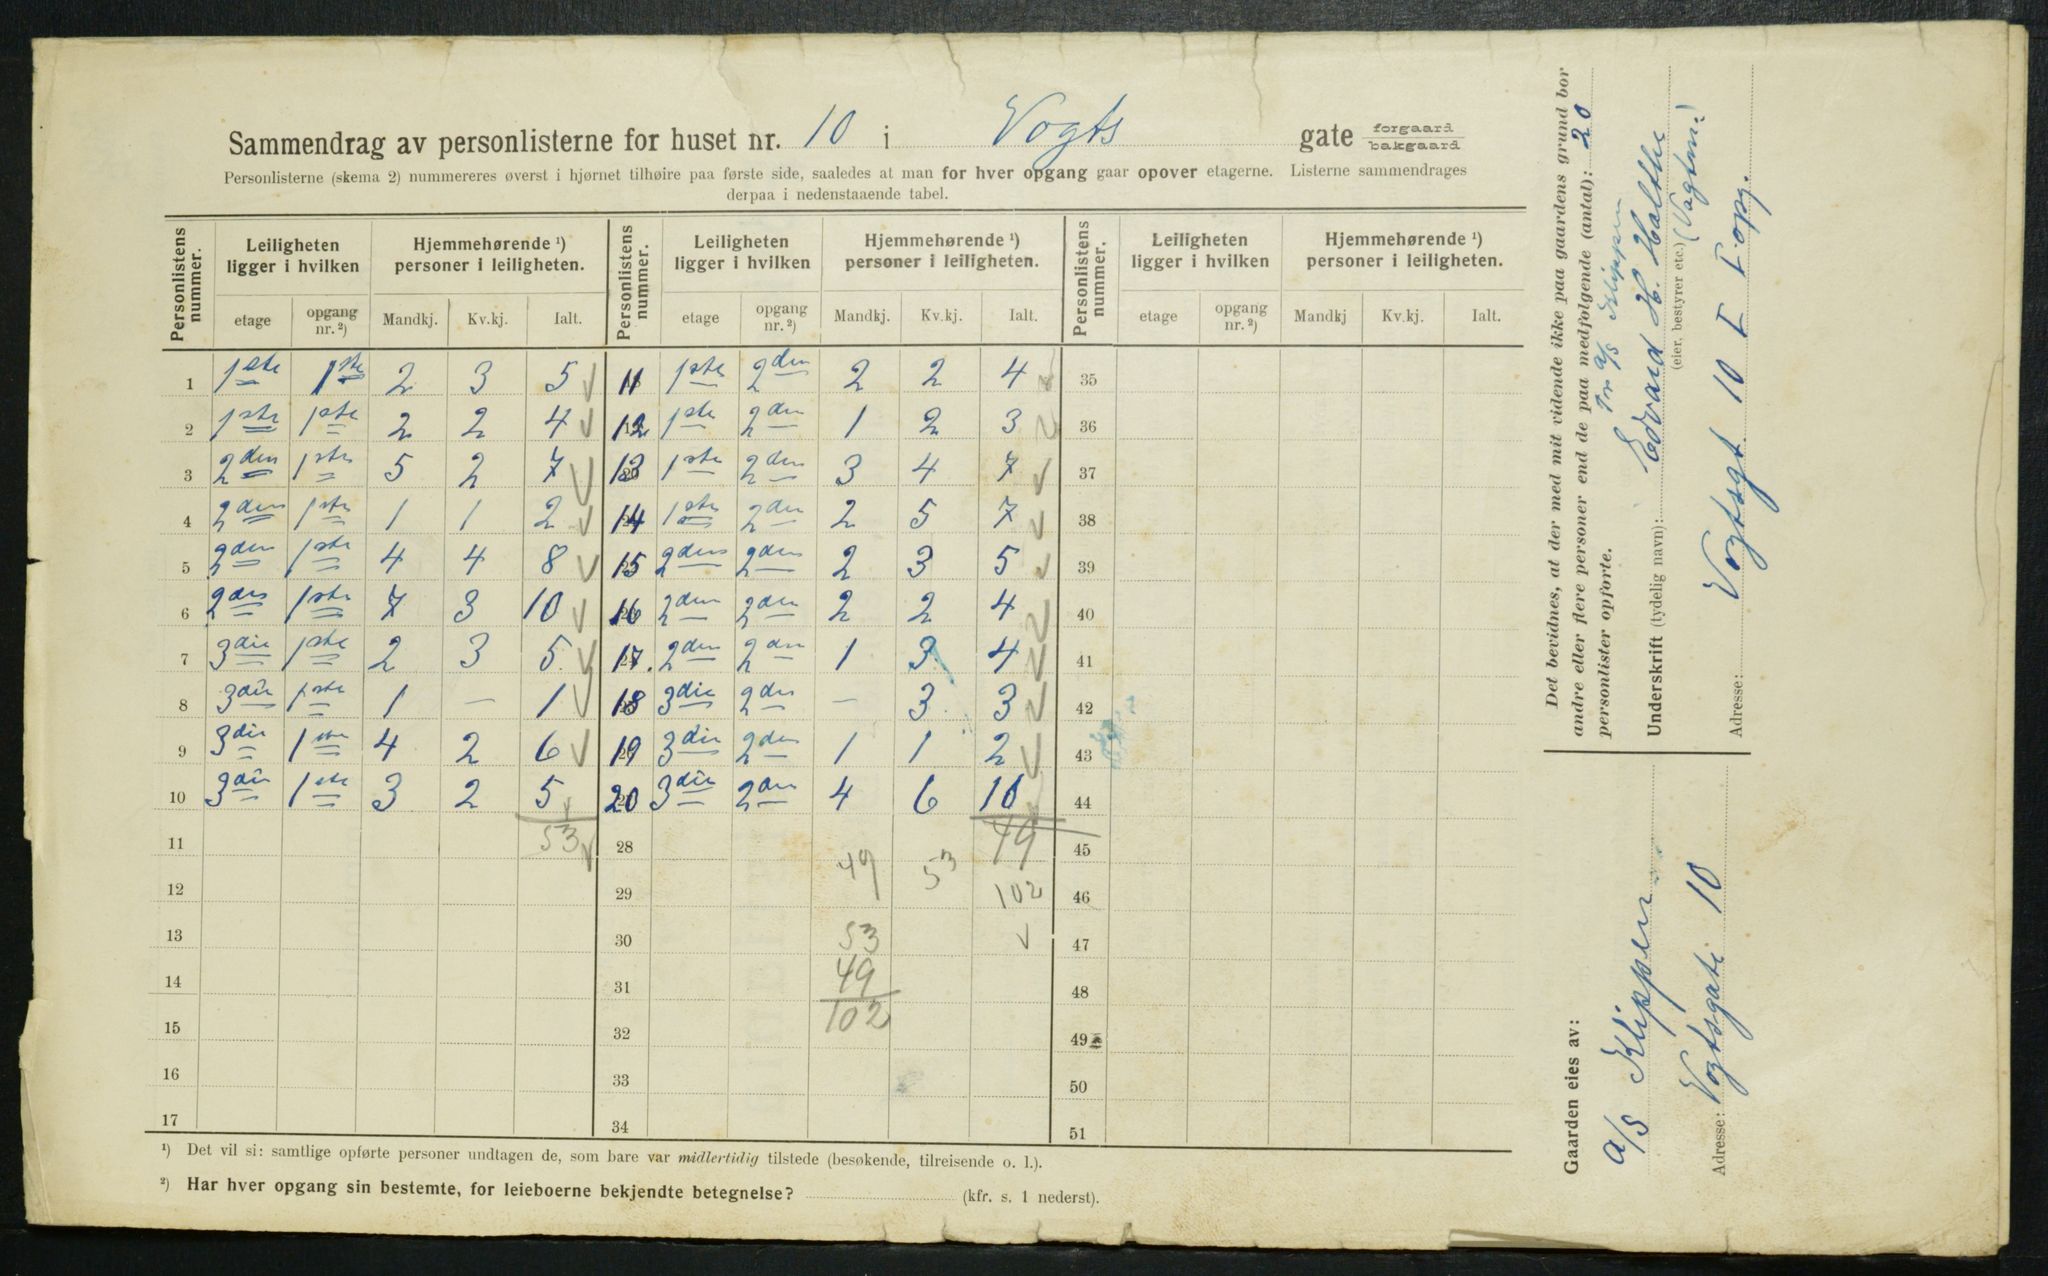 Sammendrag av personlisterne for huset nr. 10 i Vogts gate forgaard bakgaard
Personlisterne (skema 2) nummereres øverst i hjørnet tilhøire paa første side, saaledes at man for hver opgang gaar opover etagerne. Listerne sammendrages
derpaa i nedenstaaende tabel.
Personlistens nummer. Leiligheten ligger i hvilken Hjemmehørende ¹) personer i leiligheten. Personlistens nummer. Leiligheten ligger i hvilken Hjemmehørende ¹) personer i leiligheten. Personlistens nummer. Leiligheten ligger i hvilken Hjemmehørende ¹) personer i leiligheten.
etage opgang nr. ²) Mandkj. Kv.kj. Ialt. etage opgang nr. ²) Mandkj. Kv.kj. Ialt. etage opgang nr. ²) Mandkj Kv.kj. Ialt.
1 1ste 1ste 2 3 5 11 1ste 2den 2 2 4 35
2 1ste 1ste 2 2 4 12 1ste 2den 1 2 3 36
3 2den 1ste 5 2 7 13 1ste 2den 3 4 7 37
4 2den 1ste 1 1 2 14 1ste 2den 2 5 7 38
5 2den 1ste 4 4 8 15 2den 2den 2 3 5 39
6 2den 1ste 7 3 10 16 2den 2den 2 2 4 40
7 3die 1ste 2 3 5 17. 2den 2den 1 3 4 41
8 3die 1ste 1 — 1 18 3die 2den — 3 3 42
9 3die 1ste 4 2 6 19 3die 2den 1 1 2 43
10 3die 1ste 3 2 5 20 3die 2den 4 6 10 44
11 53 28 49 53 49 45
12 29 102 46
13 30 53 47
14 31 49 48
15 32 102 49
16 33 50
17 34 51
¹) Det vil si: samtlige opførte personer undtagen de, som bare var midlertidig tilstede (besøkende, tilreisende o. l.).
²) Har hver opgang sin bestemte, for leieboerne bekjendte betegnelse? (kfr. s. 1 nederst).
Det bevidnes, at der med mit vidende ikke paa gaardens grund bor
andre eller flere personer end de paa medfølgende (antal): 20
personlister opførte.
for a/s Klippen
Underskrift (tydelig navn): Edvard H. Holthe
(eier, bestyrer etc.)
Adresse: Vogtsgt. 10 I I opg.
Gaarden eies av:
a/s Klippen
Adresse: Vogtsgate 10